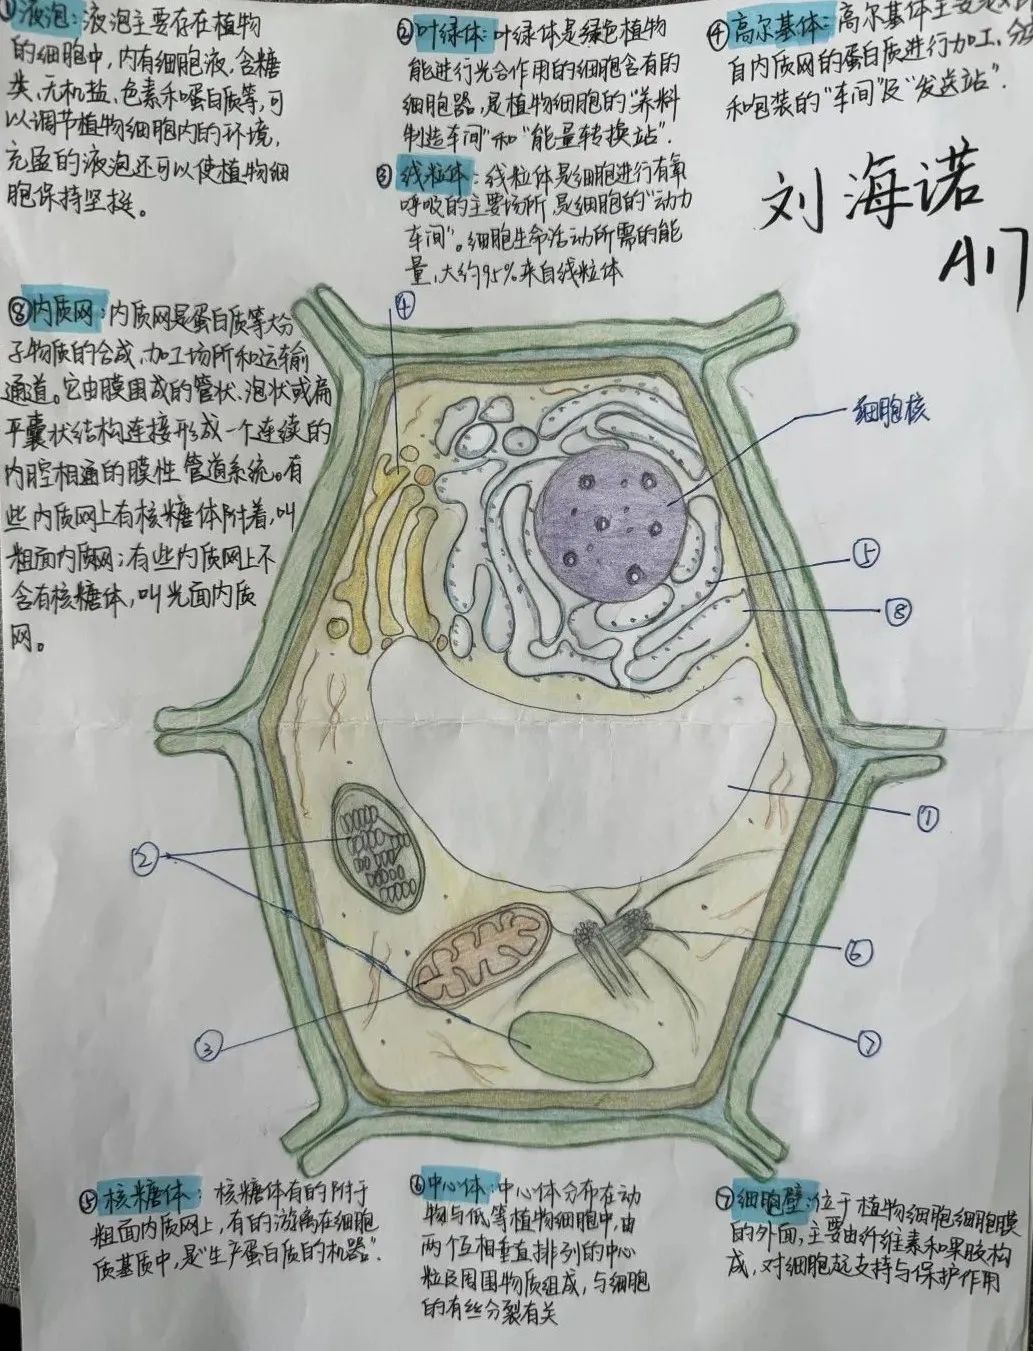 ①液泡：液泡主要存在植物
的细胞中，内有细胞液，含糖
类、无机盐、色素和蛋白质等，可
以调节植物细胞内的环境，
充盈的液泡还可以使植物细
胞保持坚挺。
②叶绿体：叶绿体是绿色植物
能进行光合作用的细胞含有的
细胞器，是植物细胞的“养料
制造车间”和“能量转换站”．
③线粒体：线粒体是细胞进行有氧
呼吸的主要场所，是细胞的“动力
车间”。细胞生命活动所需的能
量，大约95%来自线粒体
④高尔基体：高尔基体主要是对
自内质网的蛋白质进行加工、分
和包装的“车间”及“发送站”．
刘海诺
A17
⑧内质网：内质网是蛋白质等大分
子物质的合成、加工场所和运输
通道。它由膜围成的管状、泡状或扁
平囊状结构连接形成一个连续的
内腔相通的膜性管道系统。有
些内质网上有核糖体附着，叫
粗面内质网；有些内质网上不
含有核糖体，叫光面内质
网。
④
细胞核
⑤
⑧
①
②
⑥
③
⑦
⑤核糖体：核糖体有的附于
粗面内质网上，有的游离在细胞
质基质中，是“生产蛋白质的机器”．
⑥中心体：中心体分布在动
物与低等植物细胞中，由
两个互相垂直排列的中心
粒及周围物质组成，与细胞
的有丝分裂有关
⑦细胞壁：位于植物细胞细胞膜
的外面，主要由纤维素和果胶构
成，对细胞起支持与保护作用